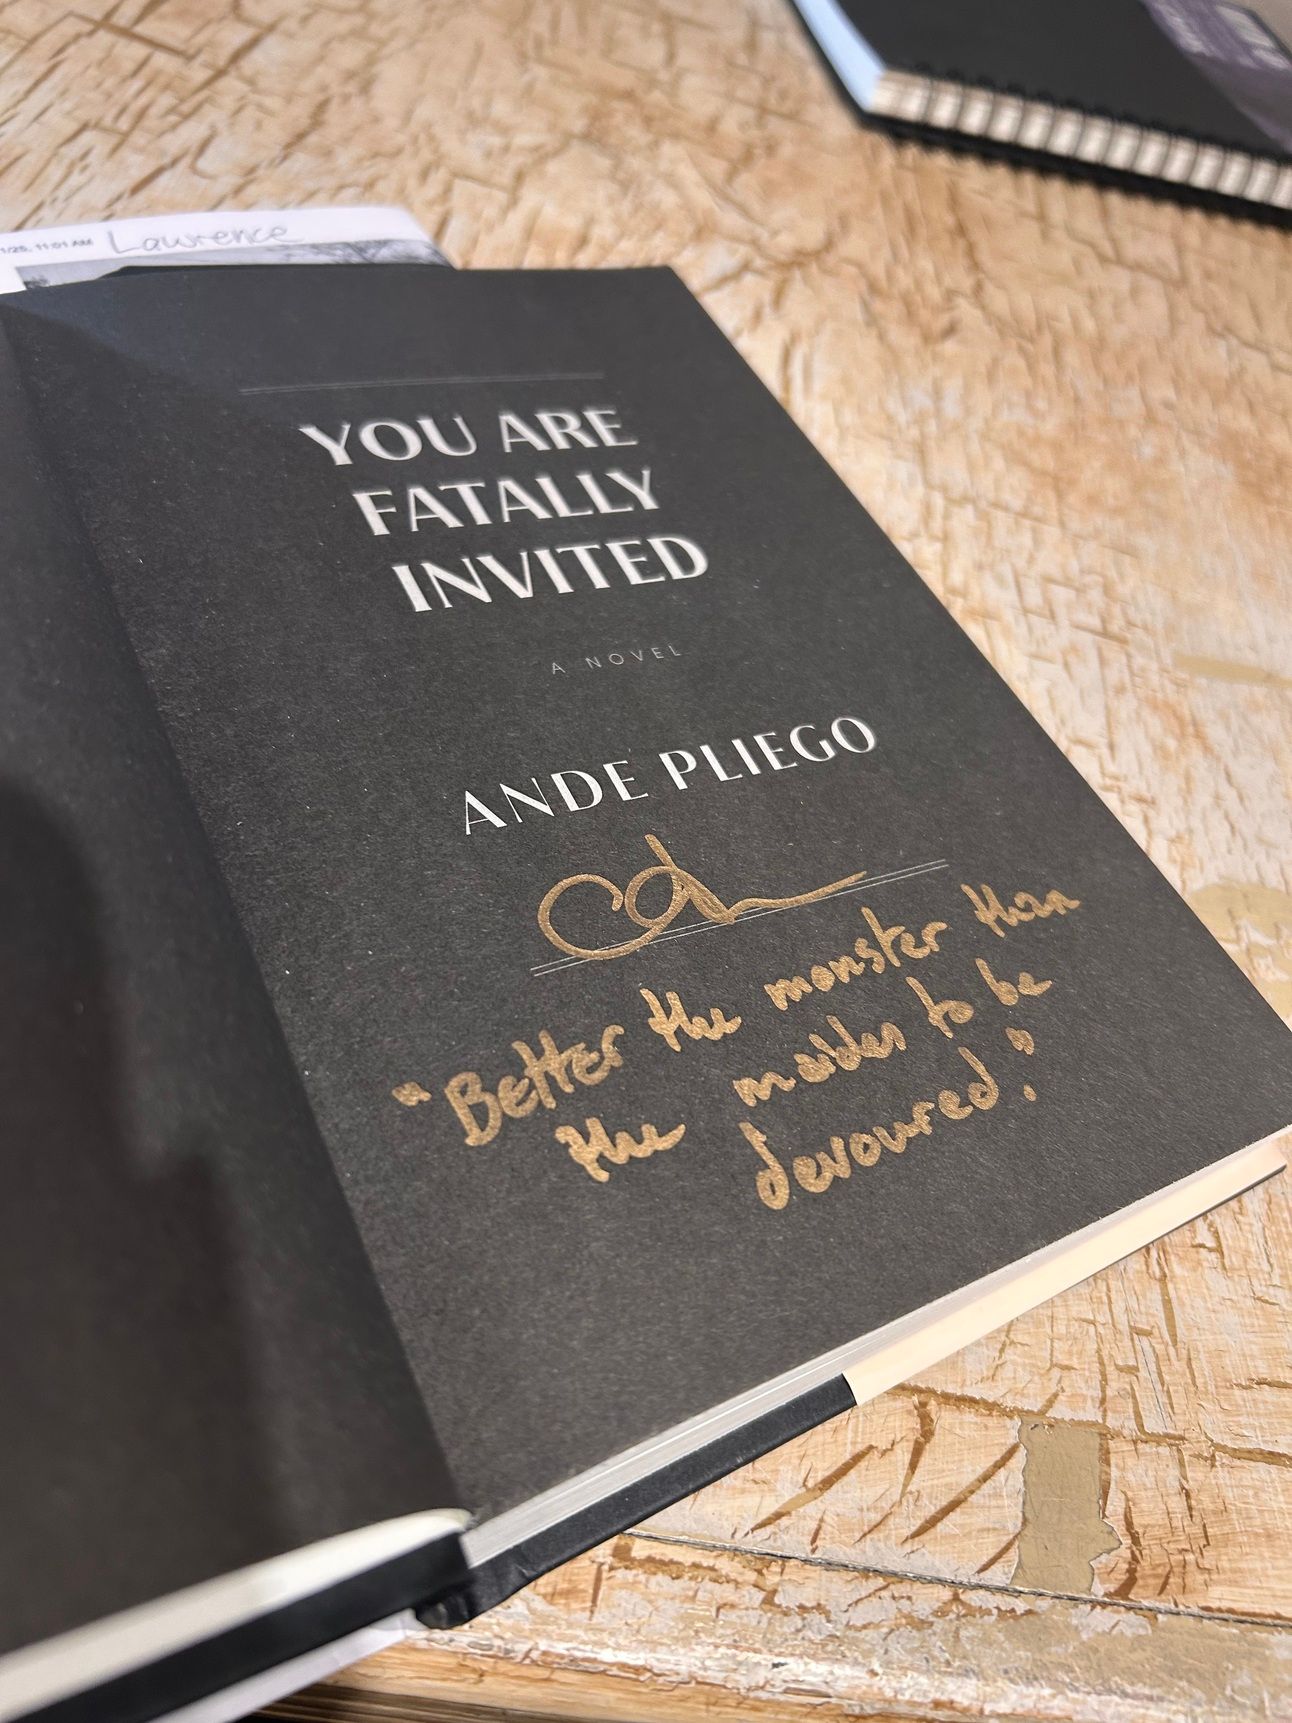 1/25, 11:01 AM Lawrence
YOU ARE
FATALLY
INVITED
A NOVEL
ANDE PLIEGO
"Better the monster than
the maiden to be
devoured."